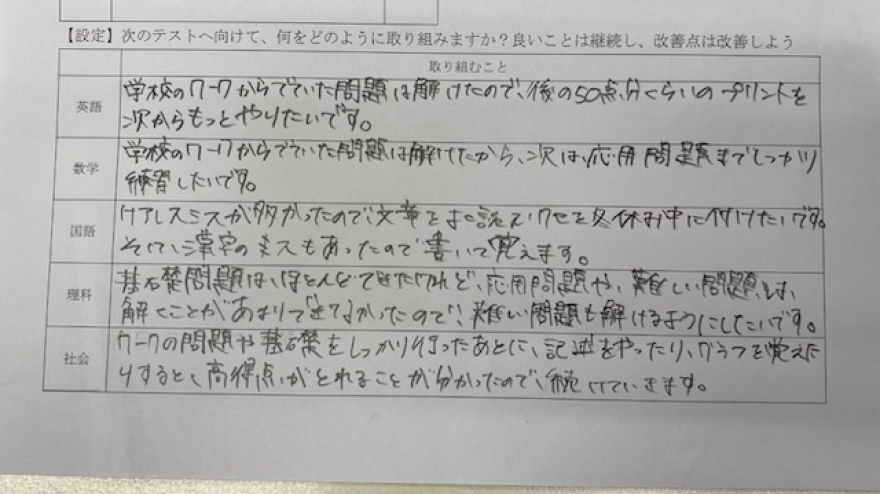 【設定】次のテストへ向けて、何をどのように取り組みますか？良いことは継続し、改善点は改善しよう
取り組むこと
英語
学校のワークからでていた問題は解けたので、後の50点分くらいのプリントを
次からもっとやりたいです。
数学
学校のワークからでていた問題は解けたから、次は、応用問題までしっかり
練習したいです。
国語
ケアレスミスが多かったので、文章をよく読むクセを冬休み中に付けたいです。
そして、漢字のミスもあったので書いて覚えます。
理科
基礎問題は、ほとんどできたけれど、応用問題や、難しい問題は、
解くことがあまりできてなかったので、難しい問題も解けるようにしたいです。
社会
ワークの問題や基礎をしっかり行ったあとに、記述をやったり、グラフを覚えた
りすると、高得点がとれることが分かったので、続けていきます。